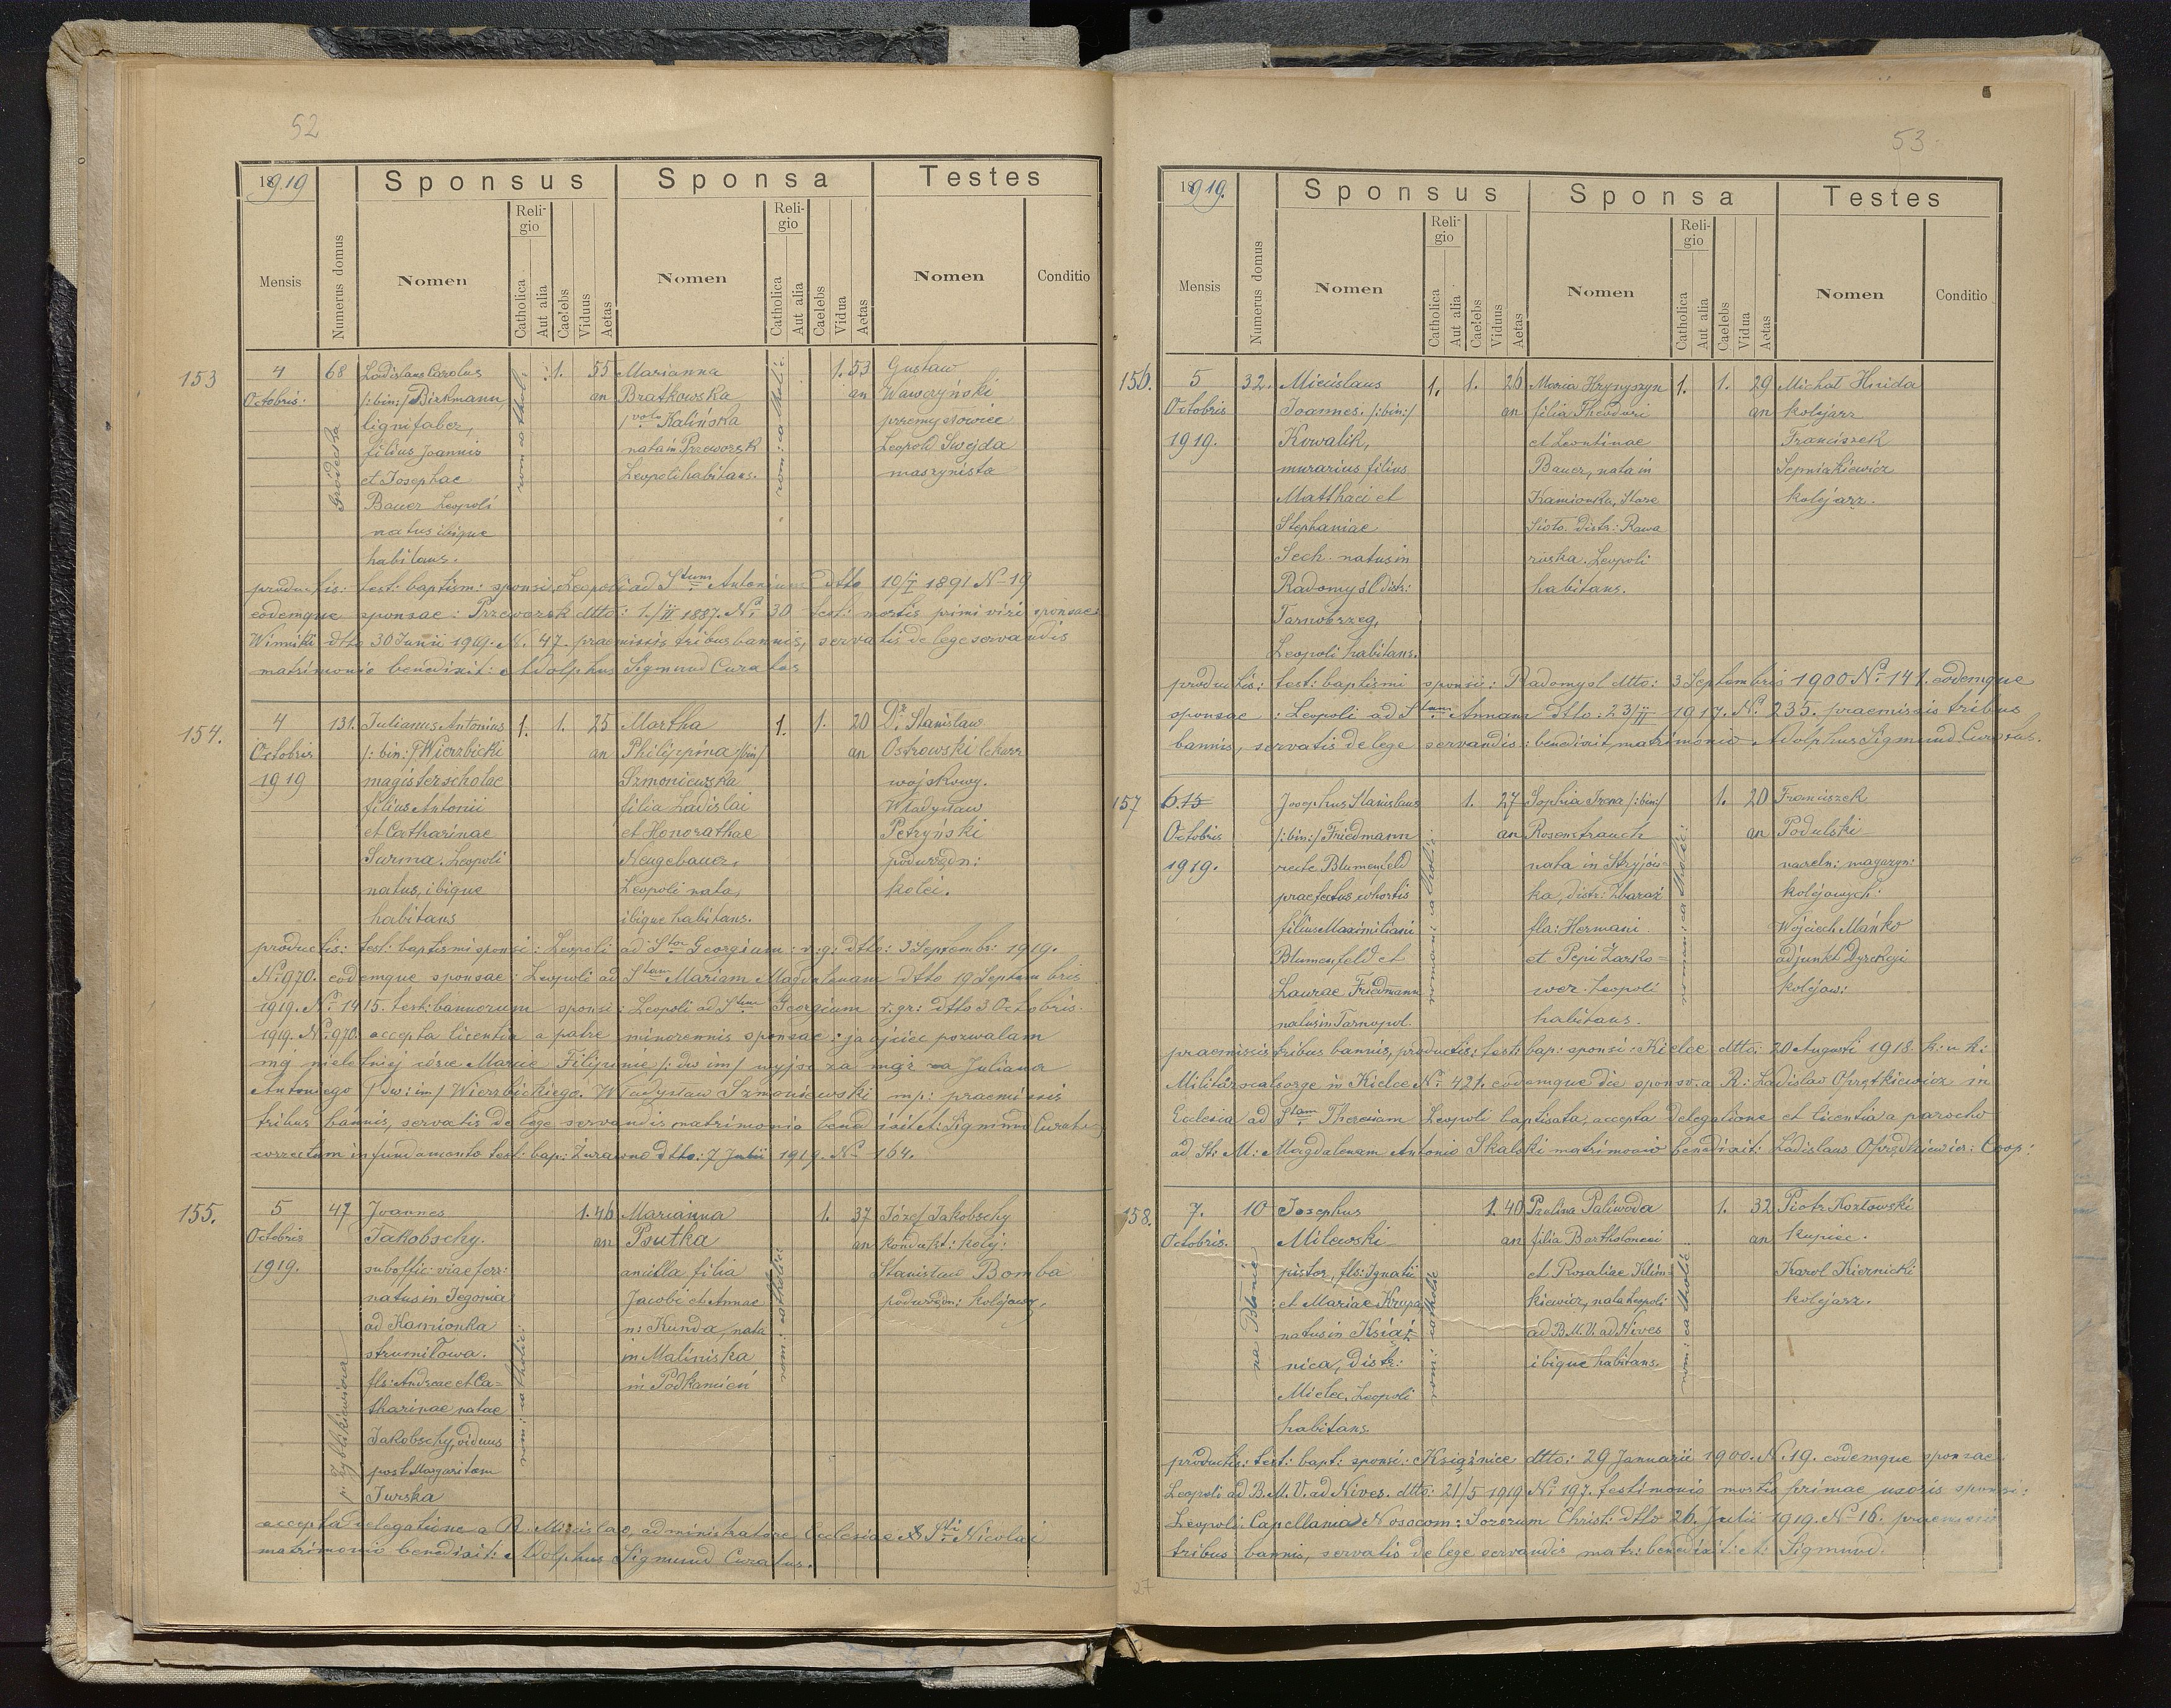 52
1919
Sponsus
Sponsa
Testes
Mensis
Numerus domus
Nomen
Religio
Catholica
Aut alia
Caelebs
Viduus
Aetas
Nomen
Religio
Catholica
Aut alia
Caelebs
Vidua
Aetas
Nomen
Conditio
153
4
Octobris
68
Gródecka
Ladislaus Carolus
/:bin:/ Birkmann,
lignifaber,
filius Joannis
et Josephae
Bauer Leopoli
natus ibique
habitans.
rom: catholi:
1. 55
an
Marianna
Bratkowska
1voto Kalińska
nata in Przeworsk
Leopoli habitans.
rom: catholic:
1. 53
an
Gustaw
Wawczyński
przemysłowiec
Leopold Swejda
maszynista
productis: test: baptism: sponsi Leopoli ad Stum Antonium dtto 10/I 1891 No 19
eodemque sponsae: Przeworsk dtto: 1./II 1887. No 30 test: mortis primi viri sponsae
Winniki dtto 30 Junii 1919. N. 47. praemissis tribus bannis, servatis de lege servandis
matrimonio benedixit: Adolphus Sigmund Curatus
154.
4
Octobris
1919
131.
Julianus Antonius
/: bin:/ Wierzbicki
magister scholae
filius Antonii
et Catharinae
Surma. Leopoli
natus, ibique
habitans
1.
1. 25
an
Martha
Philippina /:bin:/
Szmoniewska
filia Ladislai
et Honorathae
Neugebauer,
Leopoli nata,
ibique habitans.
1.
1. 20
an
Dr. Stanisław
Ostrowski lekarz
wojskowy.
Władysław
Petryński
podurzędn:
kolei.
productis: test: baptismi sponsi: Leopoli ad Stum Georgium: r: g: dtto: 3 Septembr: 1919.
No 970. eodemque sponsae: Leopoli ad Stam Mariam Magdalenam dtto 19 Septembris
1919. No 1415. test: bannorum sponsi: Leopoli ad Stum Georgium r. gr: dtto 3 Octobris.
1919. No 970. accepta licentia a patre minorennis sponsae: ja ojciec pozwalam
mej nieletniej córce Marcie Filipinie /: dw im/ wyjść za mąż za Juliana
Antoniego /dw: im/ Wierzbickiego. Władysław Szmoniewski mp: praemissis
tribus bannis, servatis de lege servandis matrimonio benedixit A: Sigmund Curatus
correctum in fundamento test: bap: Żurawno dtto: 7 Julii 1919. No 164.
155.
5
Octobris
1919.
47
Joannes
Jakobschy.
suboffic: viae ferr:
natus in Jegonia
ad Kamionka
strumiłowa.
fls: Andreae et Ca=
tharinae natae
Jakobschy, viduus
post Margaritam
Jurska
rom: catholic:
1. 46
an
Marianna
Psutka
ancilla filia
Jacobi et Annae
n: Kunda, nata
in Maliniska
in Podkamień
rom: catholic:
1. 37
an
Józef Jakobschy
kondukt: kolej:
Stanisław Bomba
podurzędn: kolejowy.
accepta delegatione a R: Miecislao, administratore Ecclesiae Sti Nicolai
matrimonio benedixit: Adolphus Sigmund Curatus.
53.
1919.
Sponsus
Sponsa
Testes
Mensis
Numerus domus
Nomen
Religio
Catholica
Aut alia
Caelebs
Viduus
Aetas
Nomen
Religio
Catholica
Aut alia
Caelebs
Vidua
Aetas
Nomen
Conditio
156.
5
Octobris
1919.
32.
Miecislaus
Joannes. /:bin:/
Kowalik,
murarius filius
Matthaei et
Stephaniae
Sech. natus in
Radomyśl distr:
Tarnobrzeg,
Leopoli habitans.
1.
1. 26
an
Maria Hryryszyn
filia Theodori
et Leontinae
Bauer, nata in
Kamionka, Stare
Sioło. distr: Rawa
ruska. Leopoli
habitans.
1.
1. 29
an
Michał Hnida
kolejarz
Franciszek
Sepniakiewicz
kolejarz.
productis: test: baptismi sponsi: Radomysl dtto: 3 Septembris 1900 No 141. eodemque
sponsae: Leopoli ad Stam Annam dtto: 23/II 1917. No 235. praemissis tribus
bannis, servatis de lege servandis: benedixit matrimonio Adolphus Sigmund Curatus.
157
6.15
Octobris
1919.
Josephus Stanislaus
/:bin:/ Friedmann
recte Blumenfeld
praefectus cohortis
filius Maximiliani
Blumenfeld et
Laurae Friedmann
natus in Tarnopol.
roman: catholic:
1. 27
an
Sophia Irena /:bin:/
Rosenstrauch
nata in Stryjów=
ka, distr: Zbaraż
fla: Hermani
et Pepi Zarko=
wer. Leopoli
habitans.
roman: catholic:
1. 20
an
Franciszek
Podulski
naczeln: magazyn:
kolejowych.
Wojciech Mańko
adjunkt Dyrekcji
kolejow:
praemissis tribus bannis, productis: test: bap: sponsi: Kielce dtto: 20 Augusti 1918. k: u k:
Militärseelsorge in Kielce No 421. eodemque die spons: a R: Ladislao Oprętkiewicz in
Ecclesia ad Stam Theresiam Leopoli baptisata, accepta delegatione et licentia a parocho
ad St: M: Magdalenam Antonio Skalski matrimonio benedixit: Ladislaus Oprędkiewicz: Coop:
158.
7.
Octobris.
10
na Błonie
Josephus
Milewski
pistor, fls: Ignatii
et Mariae Krupa
natus in Książ
nica, distr:
Mielec. Leopoli
habitans.
rom: catholic
1. 40
an
Paulina Paliwoda
filia Bartholomei
et Rosaliae Klim=
kiewicz, nata Leopoli
ad B. M. V. ad Nives
ibique habitans.
rom: catholic:
1. 32
an
Piotr Kozłowski
kupiec.
Karol Kiernicki
kolejarz.
productis: test: bapt: sponsi: Książnice dtto: 29 Januarii 1900. N. 19. eodemque sponsae:
Leopoli ad B. M. V. ad Nives. dtto: 21/5 1919 No 197. testimonio mortis primae uxoris sponsi:
Leopoli: Capellania Nosocom: Sororum Christ: dtto 26. Julii 1919. No 16. praemissis
tribus bannis, servatis de lege servandis matr: benedixit: A: Sigmund.
27